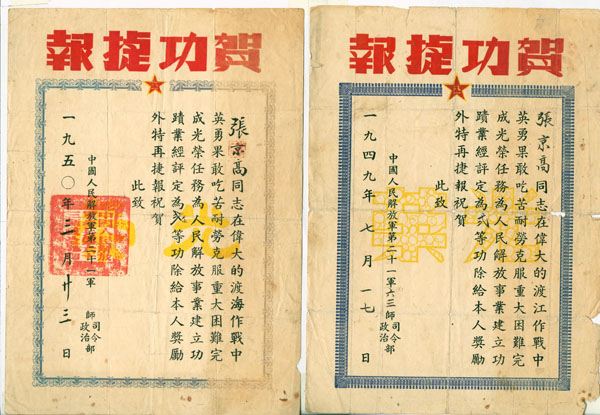 賀功捷報
張京高同志在偉大的渡江作戰中
英勇果敢吃苦耐勞克服重大困難完
成光榮任務為人民解放事業建立功
蹟業經評定為弍等功除給本人獎勵
外特再捷報祝賀
此致
中國人民解放軍第二十一軍六三師司令政治部
一九四九年七月一七日
賀功捷報
張京高同志在偉大的渡海作戰中
英勇果敢吃苦耐勞克服重大困難完
成光榮任務為人民解放事業建立功
蹟業經評定為等功除給本人獎勵
外特再捷報祝賀
此致
中國人民解放軍第二十一軍 師司令政治部
一九五〇年三月廿三日